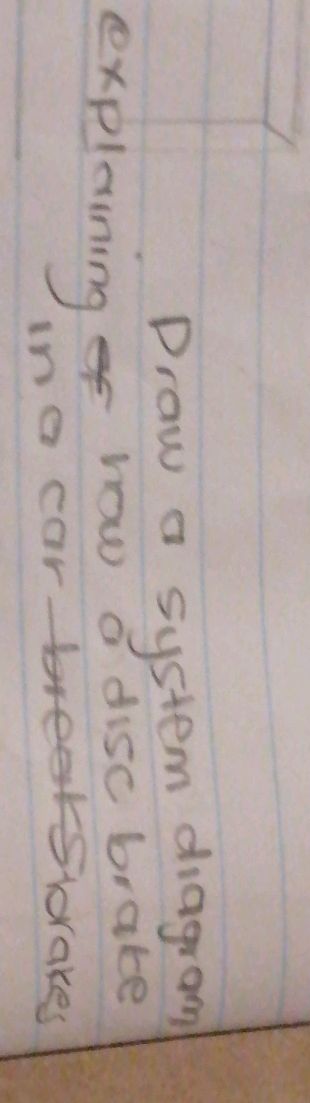 Draw a system diagram
explaining of how a disc brake
in a car breaks brakes